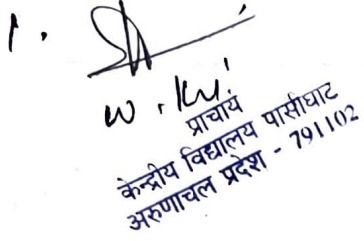 1.
प्राचार्य
केन्द्रीय विद्यालय पासीघाट
अरुणाचल प्रदेश - 791102